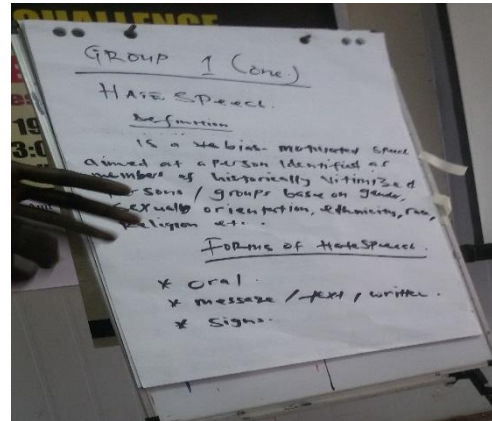 CHALLENGE
19
3:0
GROUP 1 (one.)
HATE SPEECH.
Definition
Is a -ve bias-motivated speech
aimed at a person identified as
members of historically vitimized
persons / groups base on gender,
sexually orientation, ethnicity, race,
religion et..
FORMS of Hate Speech.
* Oral.
* message / text, written.
* Signs.